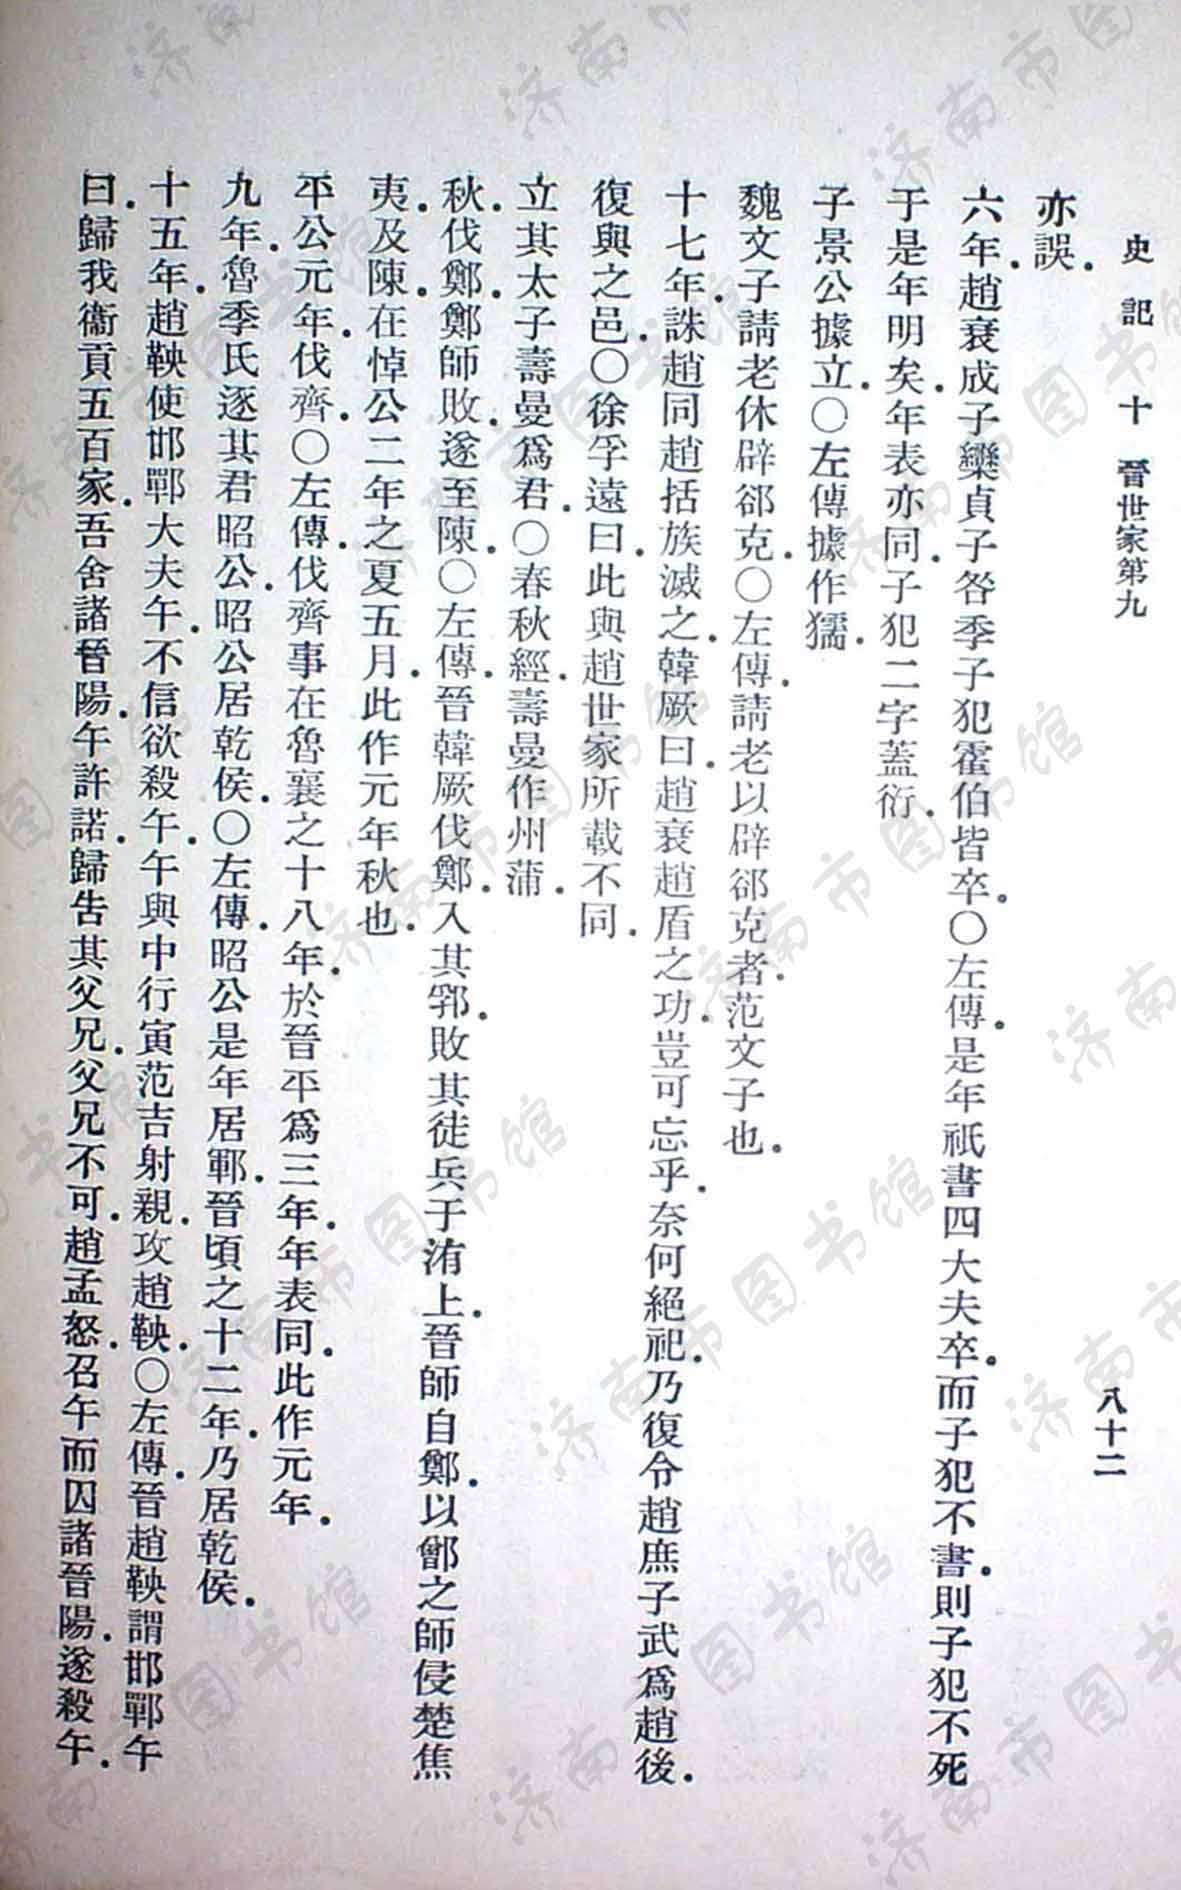 史記 十 晉世家第九 八十二
亦誤．
六年．趙衰成子欒貞子咎季子犯霍伯皆卒。〇左傳．是年祇書四大夫卒．而子犯不書．則子犯不死
于是年明矣．年表亦同．子犯二字蓋衍．
子景公據立．〇左傳據作獳．
魏文子請老休辟郤克．〇左傳．請老以辟郤克者．范文子也．
十七年．誅趙同趙括族滅之．韓厥曰．趙衰趙盾之功．豈可忘乎．奈何絕祀．乃復令趙庶子武爲趙後．
復與之邑．〇徐孚遠曰．此與趙世家所載不同．
立其太子壽曼爲君．〇春秋經．壽曼作州蒲．
秋．伐鄭．鄭師敗．遂至陳．〇左傳．晉韓厥伐鄭．入其郛．敗其徒兵于洧上．晉師自鄭．以鄫之師侵楚焦
夷．及陳．在悼公二年之夏五月．此作元年秋也．
平公元年．伐齊．〇左傳．伐齊事在魯襄之十八年．於晉平爲三年．年表同．此作元年．
九年．魯季氏逐其君昭公．昭公居乾侯．〇左傳．昭公是年居鄆．晉頃之十二年．乃居乾侯．
十五年．趙鞅使邯鄲大夫午．不信欲殺午．午與中行寅范吉射親．攻趙鞅．〇左傳．晉趙鞅謂邯鄲午
曰．歸我衞貢五百家．吾舍諸晉陽．午許諾．歸告其父兄．父兄不可．趙孟怒．召午而囚諸晉陽．遂殺午．
濟南市图书馆